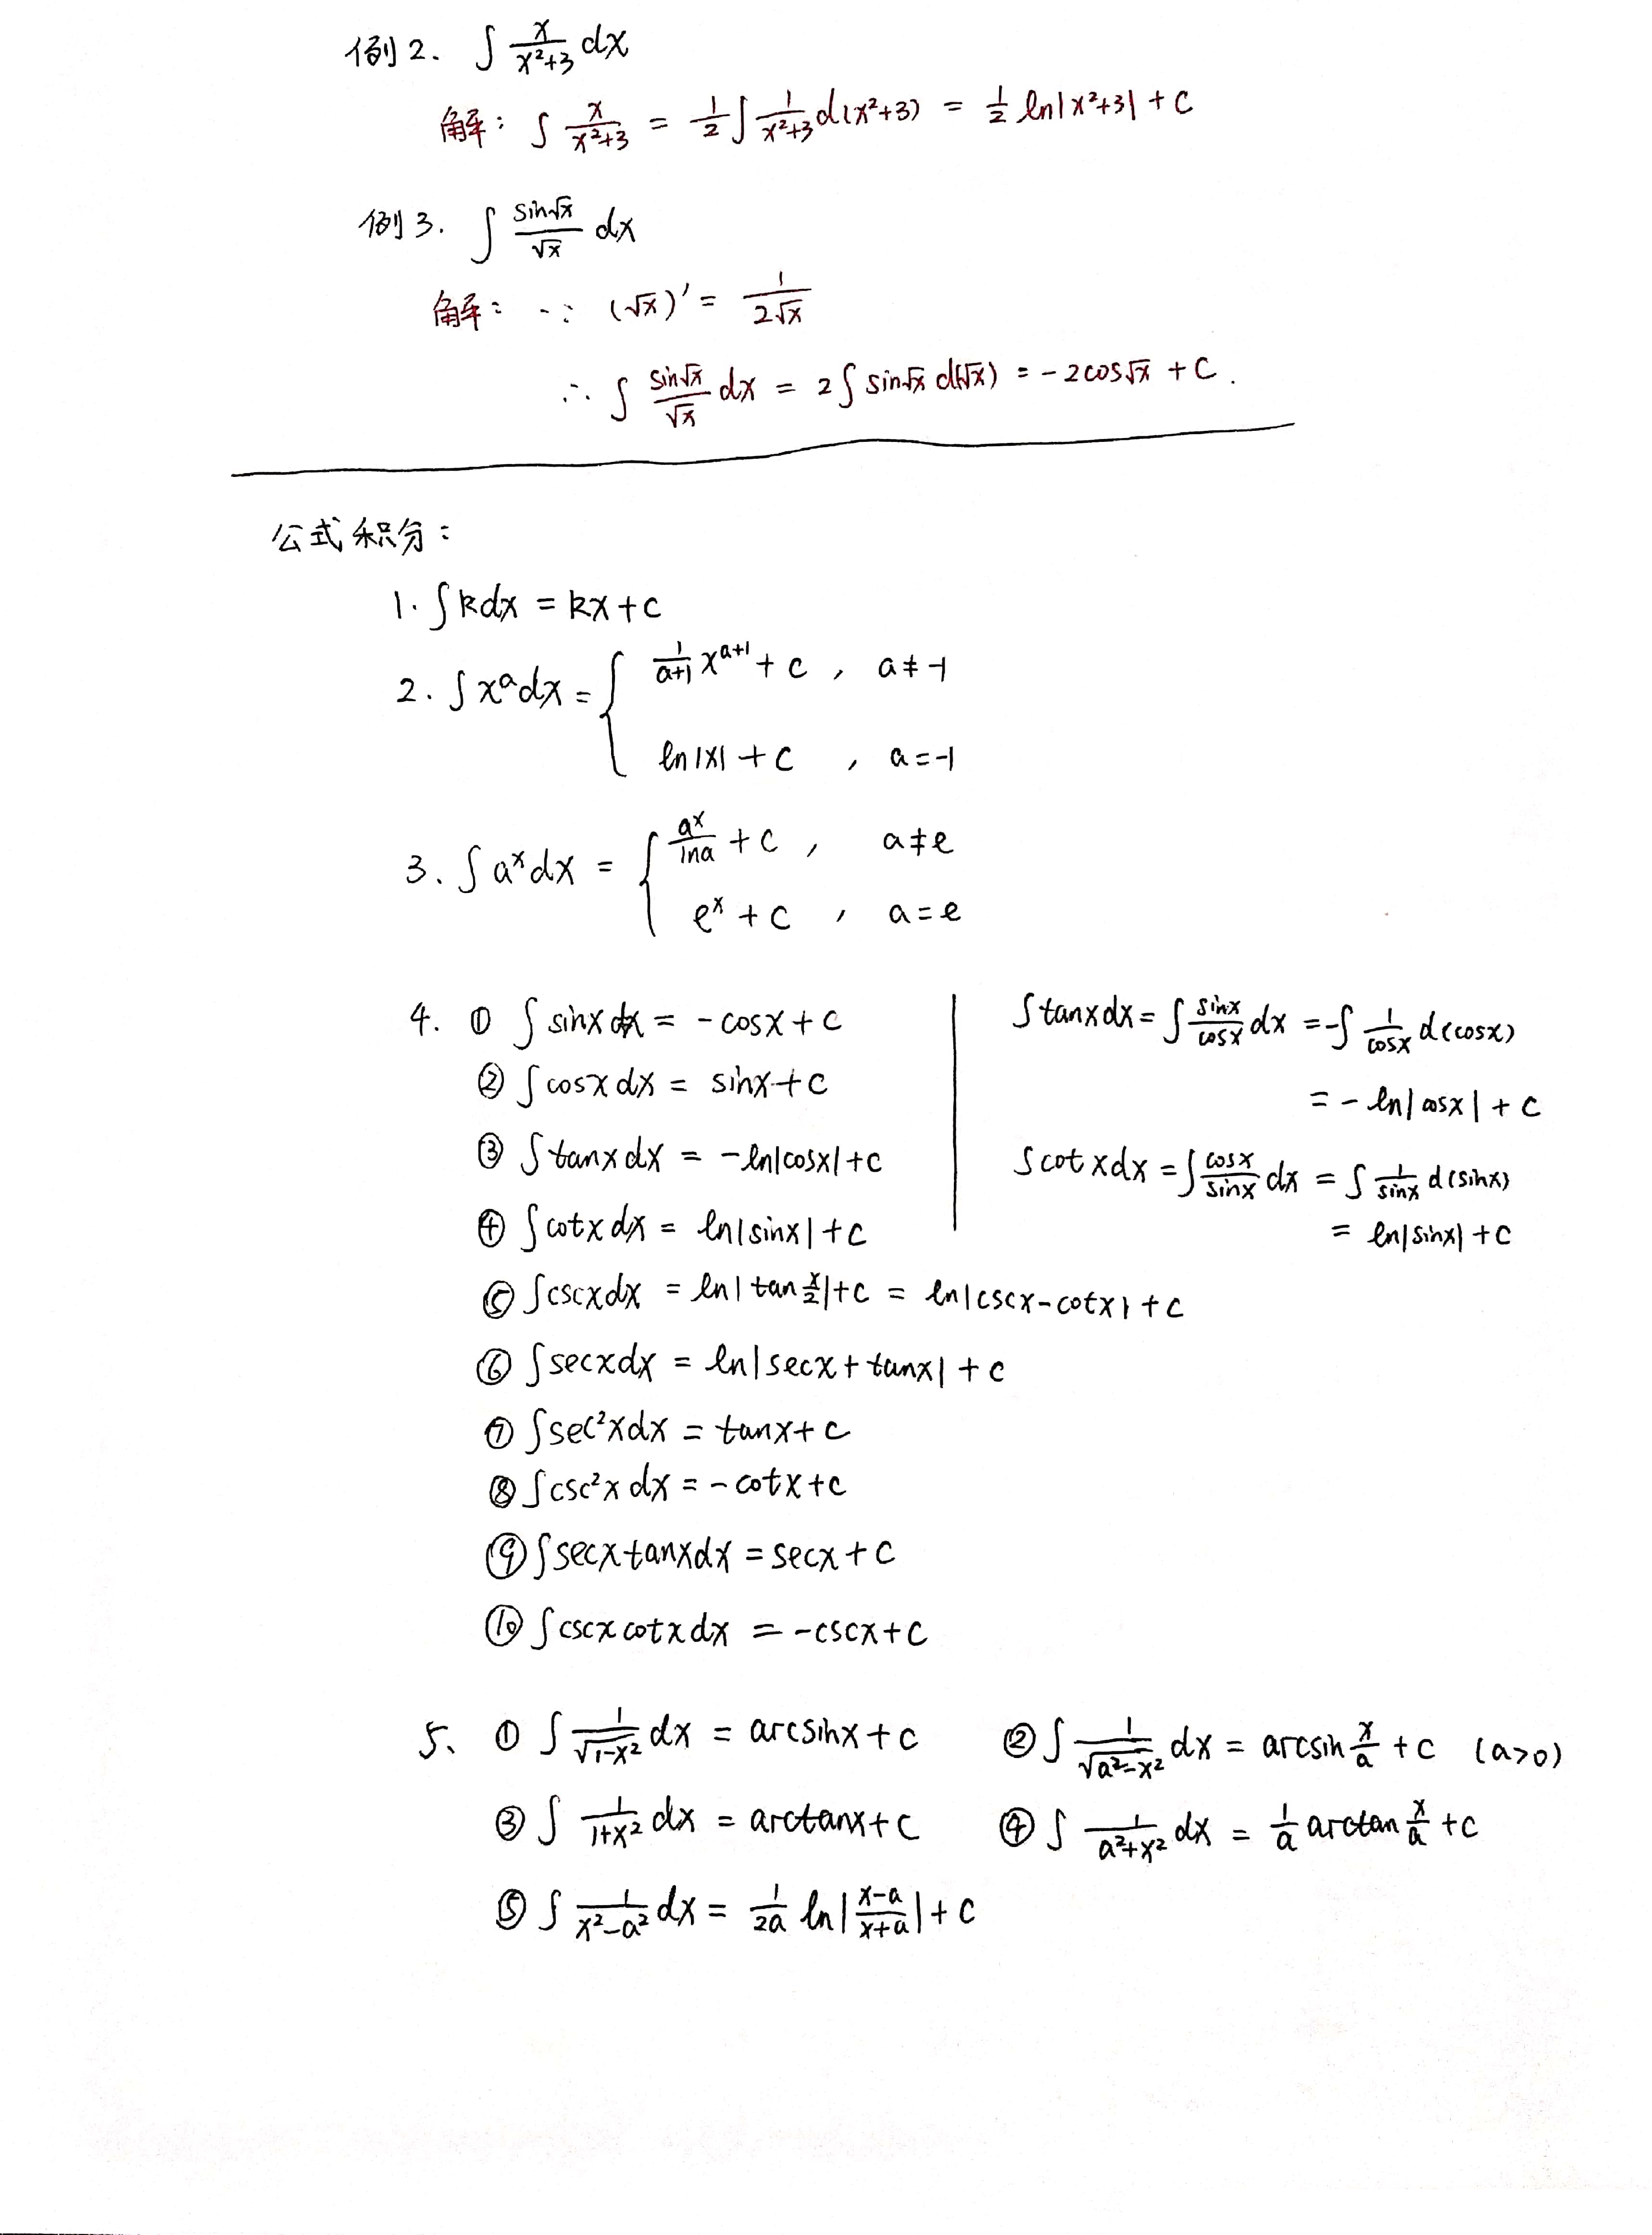 例2. ∫ x/(x²+3) dx
解: ∫ x/(x²+3) = 1/2 ∫ 1/(x²+3) d(x²+3) = 1/2 ln|x²+3| + C
例3. ∫ sin√x/√x dx
解: ∵ (√x)' = 1/(2√x)
∴ ∫ sin√x/√x dx = 2∫ sin√x d(√x) = -2cos√x + C.
公式积分:
1. ∫kdx = kx+C
2. ∫x^a dx = { 1/(a+1) x^(a+1) + C , a≠-1
ln|x| + C , a=-1
3. ∫a^x dx = { a^x/lna + C , a≠e
e^x + C , a=e
4. ① ∫sinxdx = -cosx+C
② ∫cosxdx = sinx+C
③ ∫tanxdx = -ln|cosx|+C
④ ∫cotxdx = ln|sinx|+C
∫tanxdx = ∫ sinx/cosx dx = -∫ 1/cosx d(cosx)
= -ln|cosx| + C
∫cotxdx = ∫ cosx/sinx dx = ∫ 1/sinx d(sinx)
= ln|sinx| + C
⑤ ∫cscxdx = ln|tan x/2|+C = ln|cscx-cotx|+C
⑥ ∫secxdx = ln|secx+tanx|+C
⑦ ∫sec²xdx = tanx+C
⑧ ∫csc²xdx = -cotx+C
⑨ ∫secxtanxdx = secx+C
⑩ ∫cscxcotxdx = -cscx+C
5、 ① ∫ 1/√(1-x²) dx = arcsinx+C ② ∫ 1/√(a²-x²) dx = arcsin x/a + C (a>0)
③ ∫ 1/(1+x²) dx = arctanx+C ④ ∫ 1/(a²+x²) dx = 1/a arctan x/a + C
⑤ ∫ 1/(x²-a²) dx = 1/(2a) ln|(x-a)/(x+a)| + C